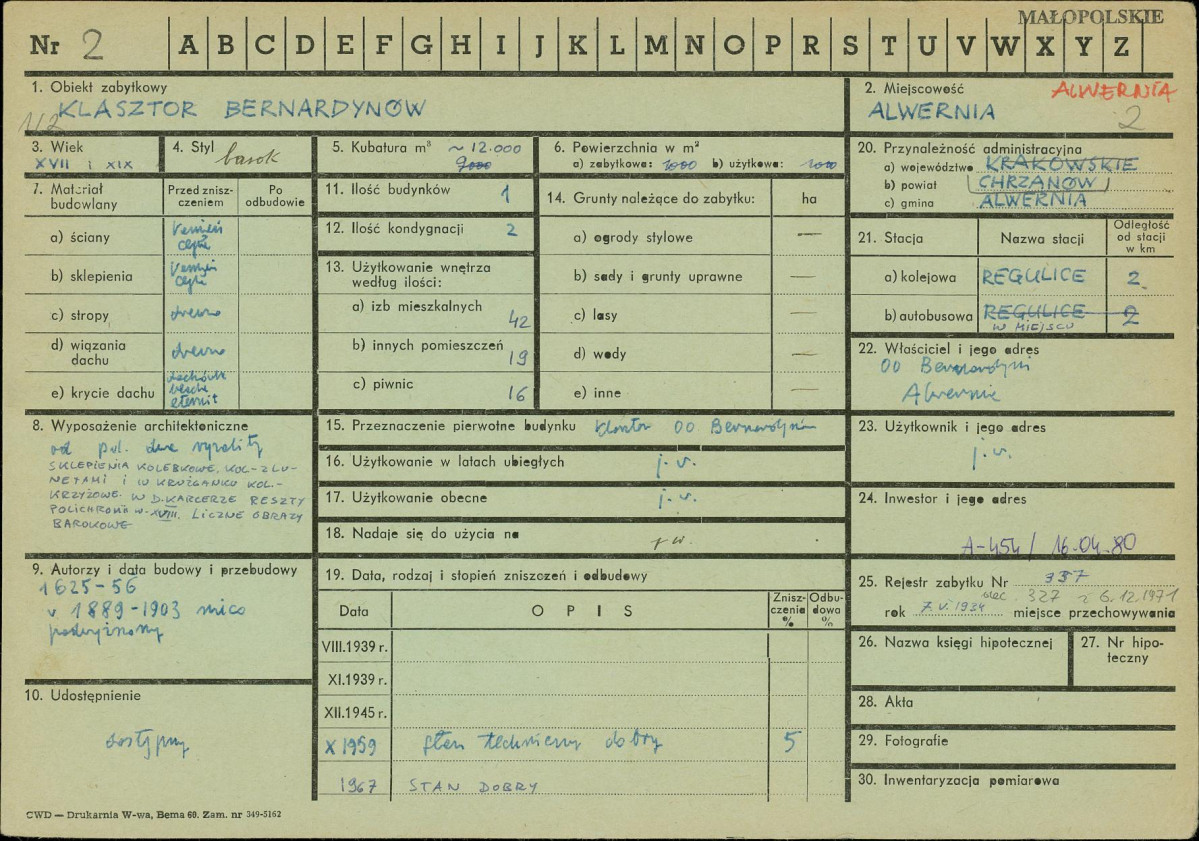 MAŁOPOLSKIE
Nr 2 A B C D E F G H I J K L M N O P R S T U V W X Y Z
1. Obiekt zabytkowy
KLASZTOR BERNARDYNÓW
1/2
2. Miejscowość ALWERNIA
ALWERNIA
2
3. Wiek
XVII i XIX
4. Styl
barok
5. Kubatura m³ ~ 12.000
9000
6. Powierzchnia w m²
a) zabytkowa: 1000 b) użytkowa: 1000
7. Materiał budowlany
Przed zniszczeniem
Po odbudowie
a) ściany kamień cegła
b) sklepienia kamień cegła
c) stropy drewno
d) wiązania dachu drewno
e) krycie dachu dachówka blacha eternit
8. Wyposażenie architektoniczne
od pol. dwa ryzality
SKLEPIENIA KOLEBKOWE, KOL.-Z LU-
NETAMI I W KRUŻGANKU KOL.-
KRZYŻOWE. W D. KARCERZE RESZTY
POLICHROMII W. XVIII. LICZNE OBRAZY
BAROKOWE
9. Autorzy i data budowy i przebudowy
1625-56
w 1889-1903 nieco
podwyższony
10. Udostępnienie
dostępny
11. Ilość budynków 1
12. Ilość kondygnacji 2
13. Użytkowanie wnętrza
według ilości:
a) izb mieszkalnych 42
b) innych pomieszczeń 19
c) piwnic 16
14. Grunty należące do zabytku: ha
a) ogrody stylowe —
b) sady i grunty uprawne —
c) lasy —
d) wody —
e) inne —
15. Przeznaczenie pierwotne budynku klasztor OO Bernardynów
16. Użytkowanie w latach ubiegłych j. w.
17. Użytkowanie obecne j. w.
18. Nadaje się do użycia na j. w.
19. Data, rodzaj i stopień zniszczeń i odbudowy
Data O P I S Zniszczenia % Odbudowa %
VIII.1939 r.
XI.1939 r.
XII.1945 r.
X 1959 stan techniczny dobry 5
1967 STAN DOBRY
20. Przynależność administracyjna
a) województwo KRAKOWSKIE
b) powiat CHRZANÓW
c) gmina ALWERNIA
21. Stacja Nazwa stacji Odległość od stacji w km
a) kolejowa REGULICE 2
b) autobusowa REGULICE 2
W MIEJSCU
22. Właściciel i jego adres
OO Bernardyni
Alwernia
23. Użytkownik i jego adres
j. w.
24. Inwestor i jego adres
A-454 / 16.04.80
25. Rejestr zabytku Nr 337
327 z 6.12.1971
rok 7.V.1934 miejsce przechowywania
26. Nazwa księgi hipotecznej
27. Nr hipoteczny
28. Akta
29. Fotografie
30. Inwentaryzacja pomiarowa
CWD — Drukarnia W-wa, Bema 60. Zam. nr 349-5162